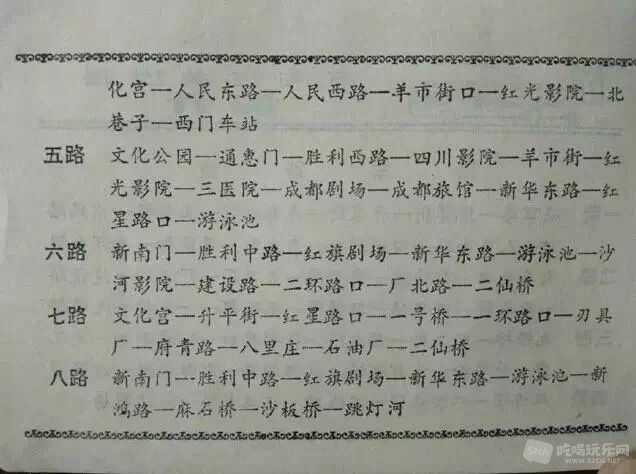 化宫—人民东路—人民西路—羊市街口—红光影院—北
巷子—西门车站
五路 文化公园—通惠门—胜利西路—四川影院—羊市街—红
光影院—三医院—成都剧场—成都旅馆—新华东路—红
星路口—游泳池
六路 新南门—胜利中路—红旗剧场—新华东路—游泳池—沙
河影院—建设路—二环路口—厂北路—二仙桥
七路 文化宫—升平街—红星路口—一号桥—一环路口—刃具
厂—府青路—八里庄—石油厂—二仙桥
八路 新南门—胜利中路—红旗剧场—新华东路—游泳池—新
鸿路—麻石桥—沙板桥—跳灯河
吃喝玩乐网